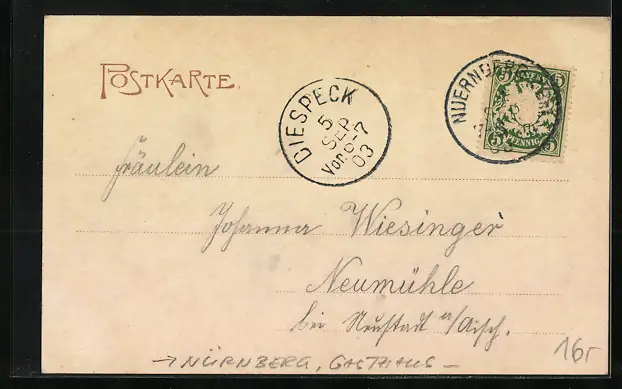 POSTKARTE.
DIESPECK
5
SEP
Vor. 6-7
03
NUERNBERG
BAYERN
5 5
5 PFENNIG 5
Fräulein
Johanna Wiesinger
Neumühle
bei Neustadt a/Aisch.
→ NÜRNBERG, GASTHAUS –
16r